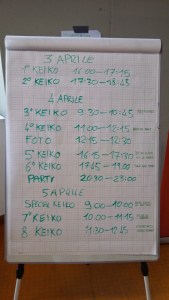 3 APRILE
1° KEIKO 16.00-17.15
2° KEIKO 17.30-18.45
4 APRILE
3° KEIKO 9.30-10.45
4° KEIKO 11.00-12.15
FOTO 12.15-12.30
5° KEIKO 16.15-17.30
6° KEIKO 17.45-19.00
PARTY 20.30-23.00
5 APRILE
SPECIAL KEIKO 9.00-10.00
7° KEIKO 10.00-11.15
8 KEIKO